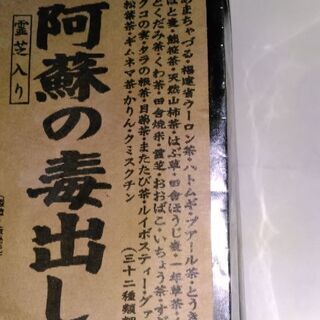 あまちゃづる・福建省ウーロン茶・ハトムギ・プアール茶・とうき
はと麦・熊笹茶・天然山柿茶・はぶ草・田舎ほうじ茶・一年草茶・
どくだみ茶・くわ茶・田舎焼米・霊芝・おおばこ・いちょう茶・すぎ
クコの実・タラの根茶・目薬茶・またたび茶・ルイボスティー・グァ
松葉茶・ギムネマ茶・かりん・クミスクチン
(三十二種類
阿蘇の毒出し
霊芝入り